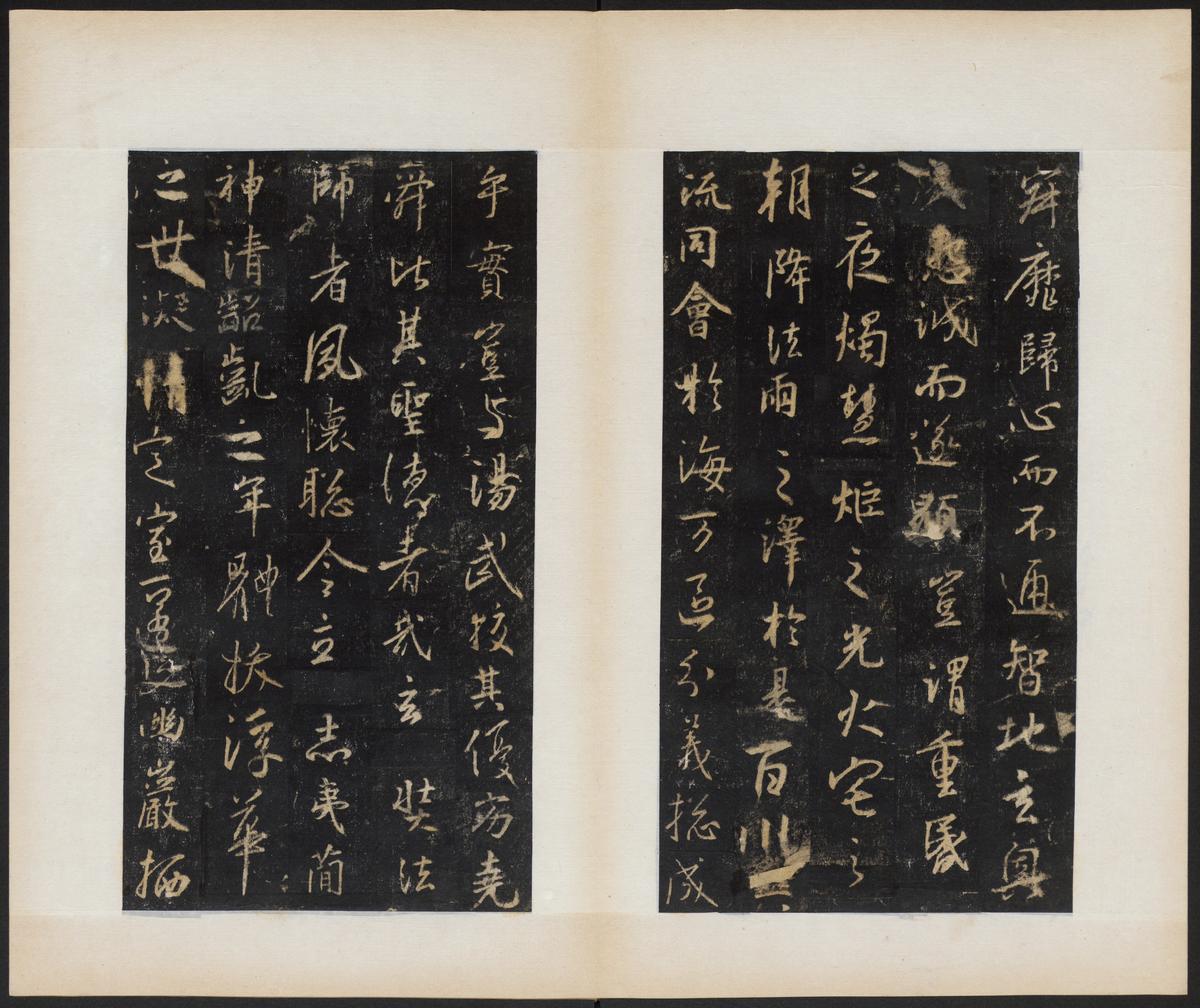 寂靡歸心而不通智地玄奧
感懇誠而遂顯豈謂重昏
之夜燭慧炬之光火宅之
朝降法雨之澤於是百川異
流同會於海万區分義揔成
乎實豈與湯武挍其優劣堯
舜比其聖德者哉玄奘法
師者夙懷聡令立志夷簡
神清齠齓之年體拔浮華
之世凝情定室匿迹幽巖栖